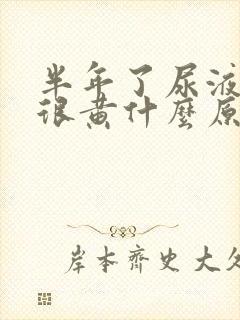 半年了尿液
很黄什麼原
岸本齊史大久